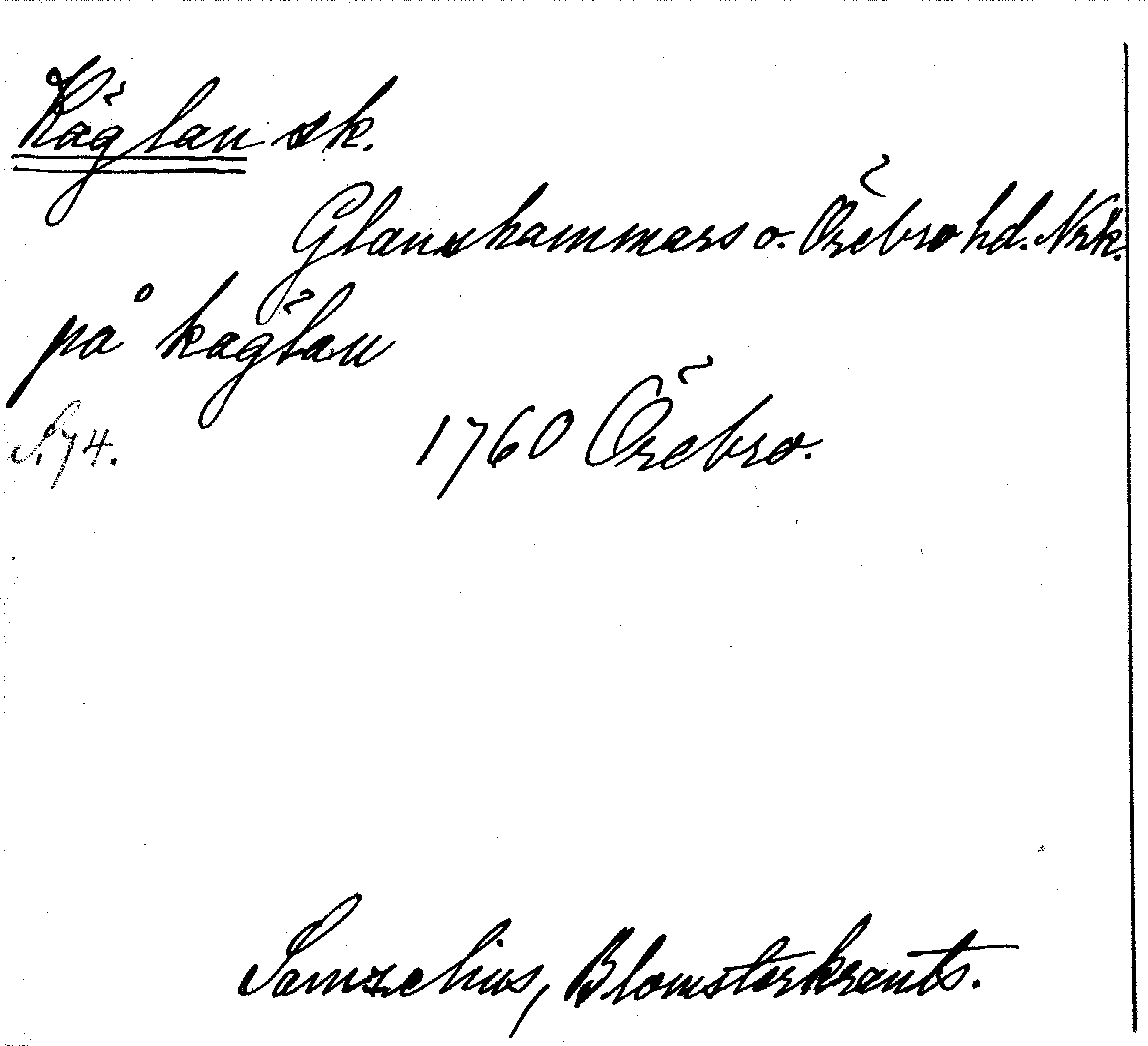 Käglan sk.
Glanshammars o. Örebro hd. Nrk.
på käglan
S. 74. 1760 Örebro.
Samzelius, Blomsterkrants.